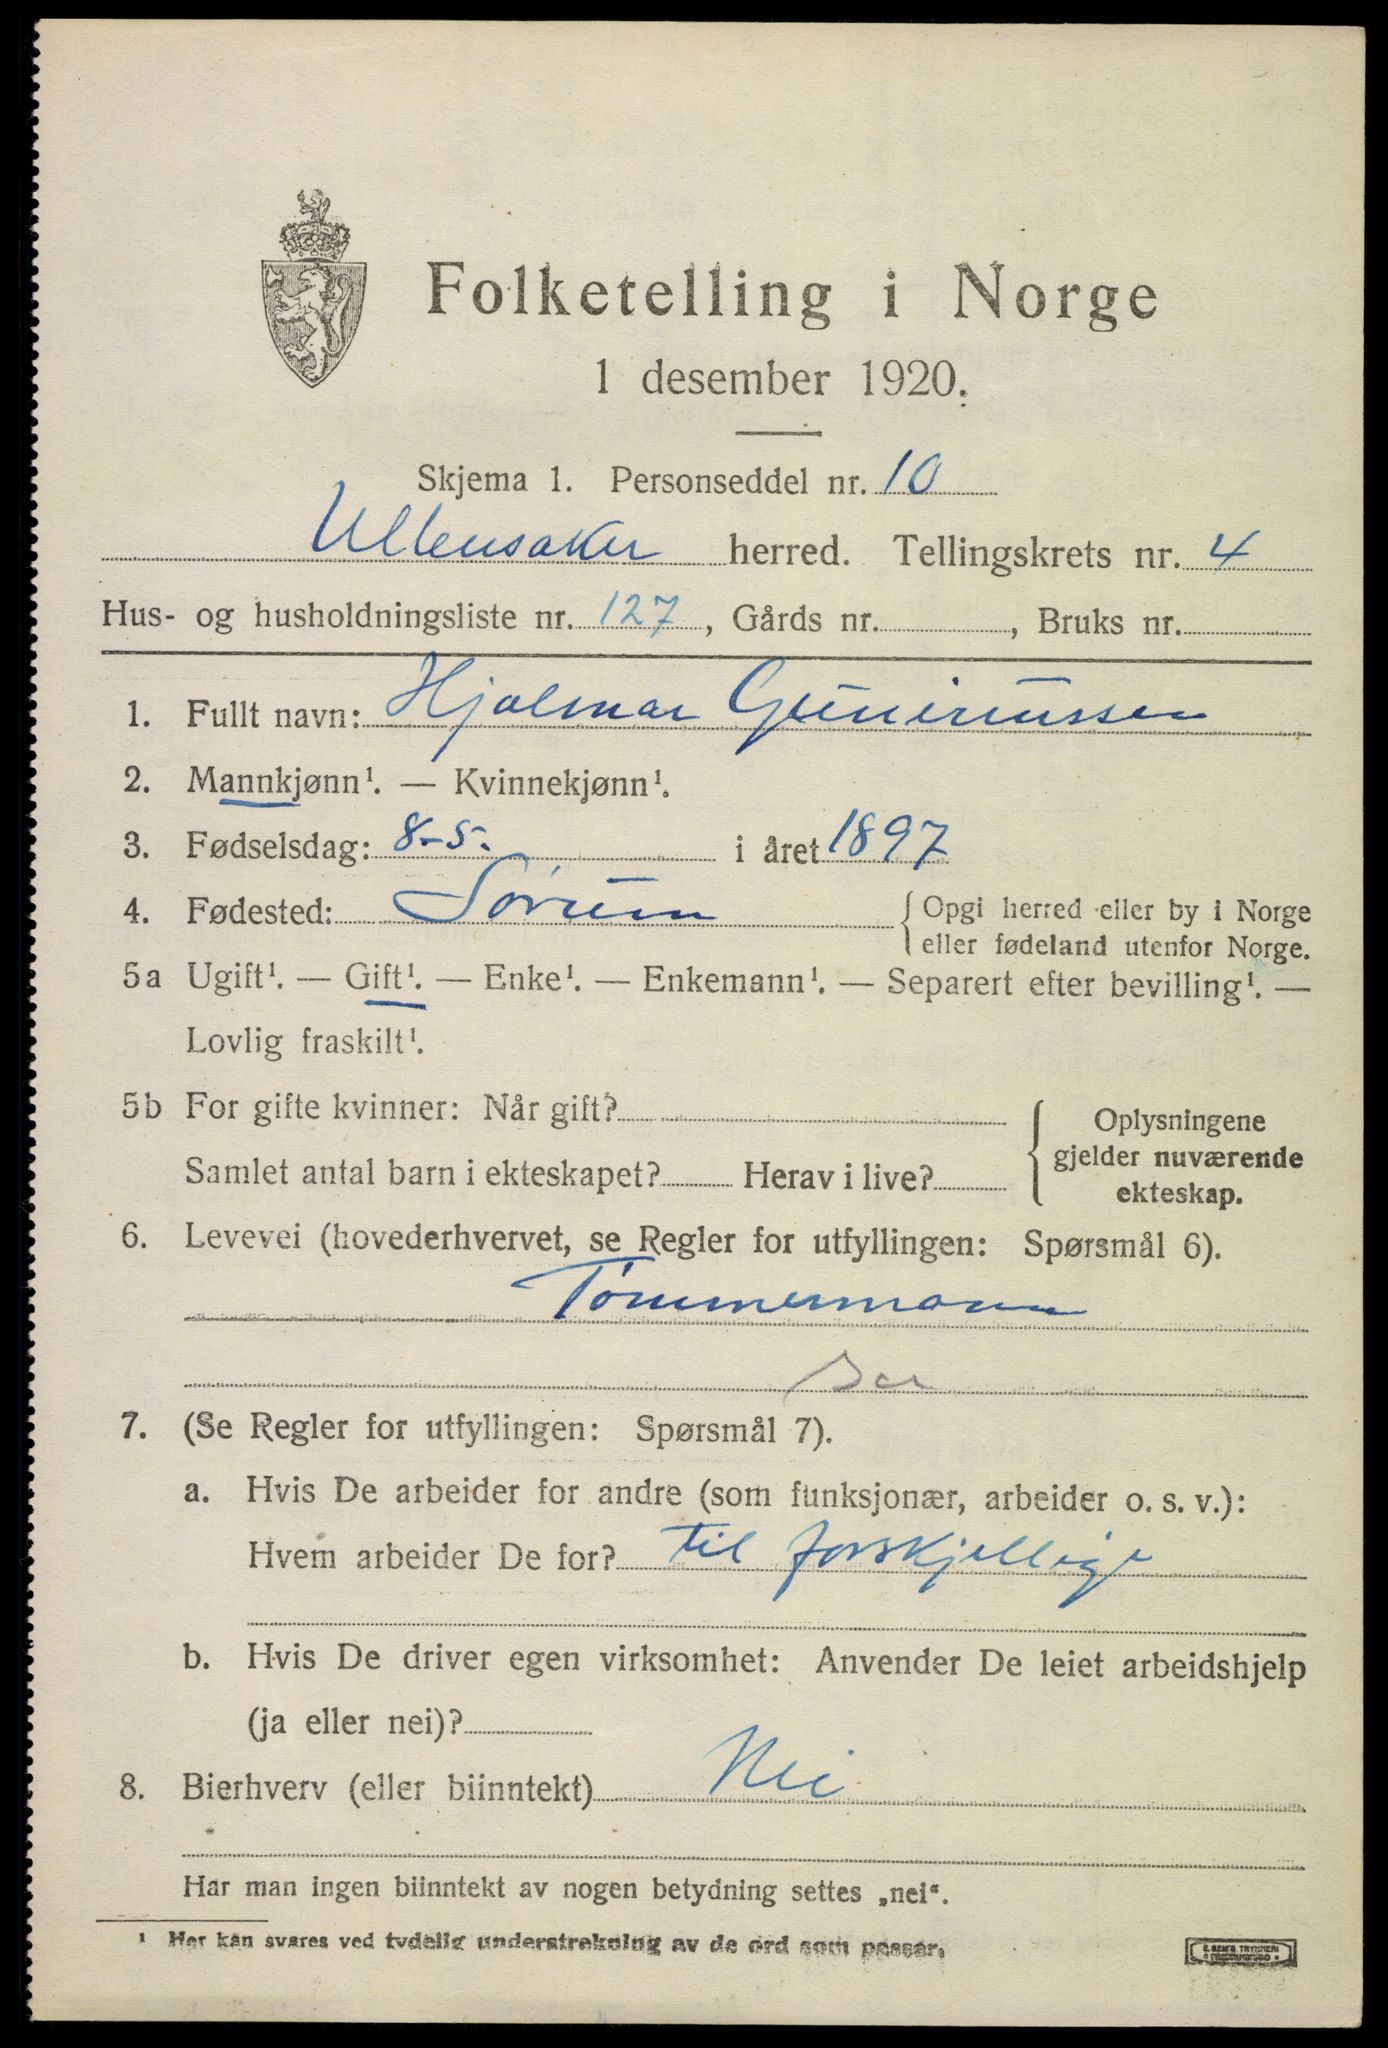 Folketelling i Norge
1 desember 1920.
Skjema 1. Personseddel nr. 10
Ullensaker herred. Tellingskrets nr. 4
Hus- og husholdningsliste nr. 127, Gårds nr. , Bruks nr.
1. Fullt navn: Hjalmar Guneriussen
2. Mannkjønn¹. — Kvinnekjønn¹.
3. Fødselsdag: 8-5. i året 1897
4. Fødested: Sørum { Opgi herred eller by i Norge
eller fødeland utenfor Norge.
5a Ugift¹. — Gift¹. — Enke¹. — Enkemann¹. — Separert efter bevilling¹. —
Lovlig fraskilt¹.
5b For gifte kvinner: Når gift? { Oplysningene
gjelder nuværende
Samlet antal barn i ekteskapet? Herav i live?
ekteskap.
6. Levevei (hovederhvervet, se Regler for utfyllingen: Spørsmål 6).
Tømmermann
7. (Se Regler for utfyllingen: Spørsmål 7).
a. Hvis De arbeider for andre (som funksjonær, arbeider o. s. v.):
Hvem arbeider De for? til forskjellige
b. Hvis De driver egen virksomhet: Anvender De leiet arbeidshjelp
(ja eller nei)?
8. Bierhverv (eller biinntekt) Nei
Har man ingen biinntekt av nogen betydning settes „nei“.
¹ Her kan svares ved tydelig understrekning av de ord som passer.